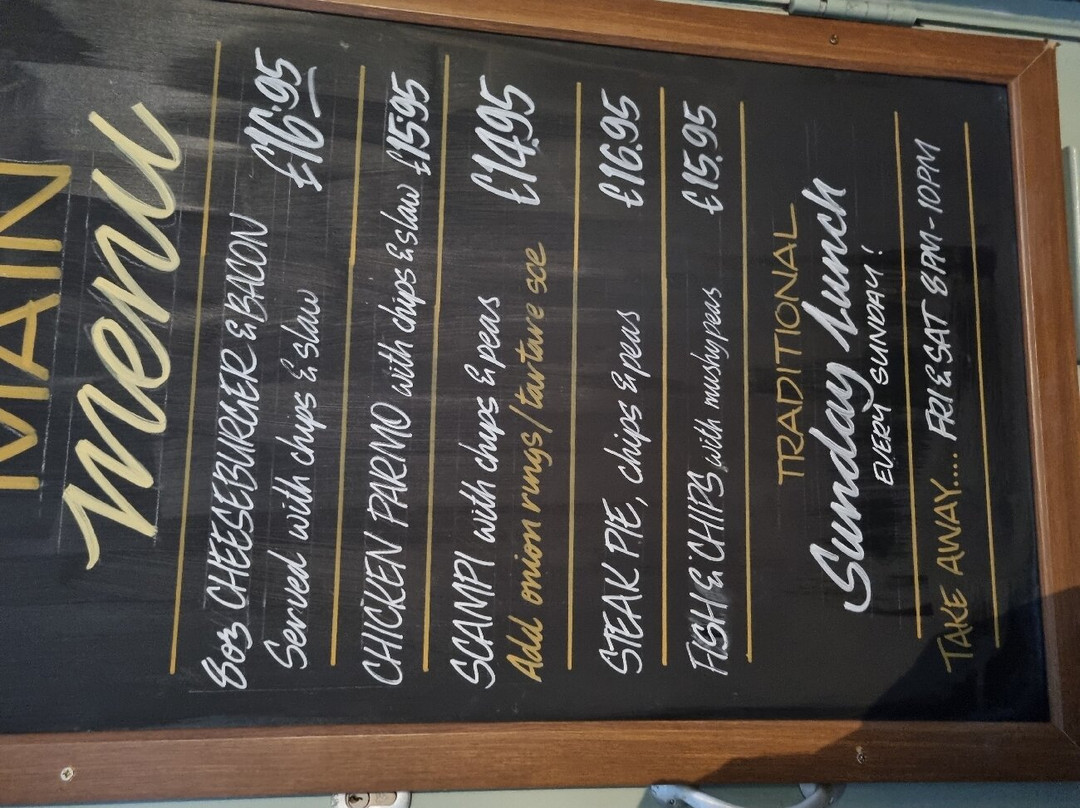 MAIN
menu
8oz CHEESEBURGER & BACON
Served with chips & slaw £16.95
CHICKEN PARMO with chips & slaw £15.95
SCAMPI with chips & peas £14.95
Add onion rings/tartare sce
STEAK PIE, chips & peas £16.95
FISH & CHIPS with mushy peas £15.95
TRADITIONAL
Sunday Lunch
EVERY SUNDAY!
TAKE AWAY... FRI & SAT 8PM-10PM